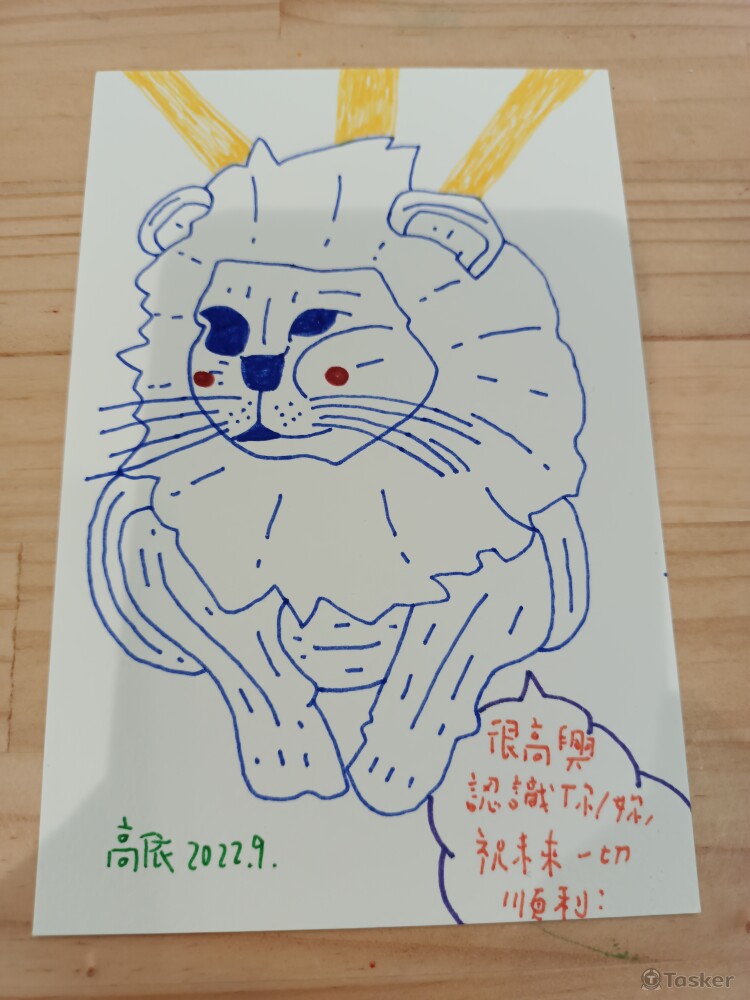 很高興
認識你/妳,
祝未來一切
順利:
高辰 2022.9.
Tasker